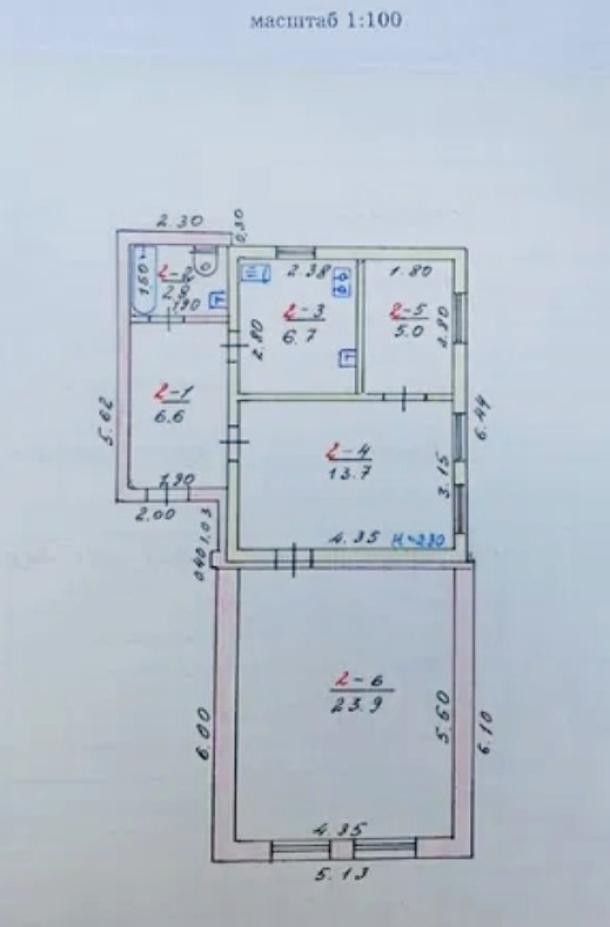 масштаб 1:100
2.30
0,30
1,50
2-2
2.8
1,90
2.38
2-3
6.7
2.80
1.80
2-5
5.0
2.80
2-1
6.6
5.62
1,90
2.00
2-4
13.7
3.15
6.44
4.35
H=2.80
1.03
0.40
2-6
23.9
6.00
5.60
6.10
4.35
5.13